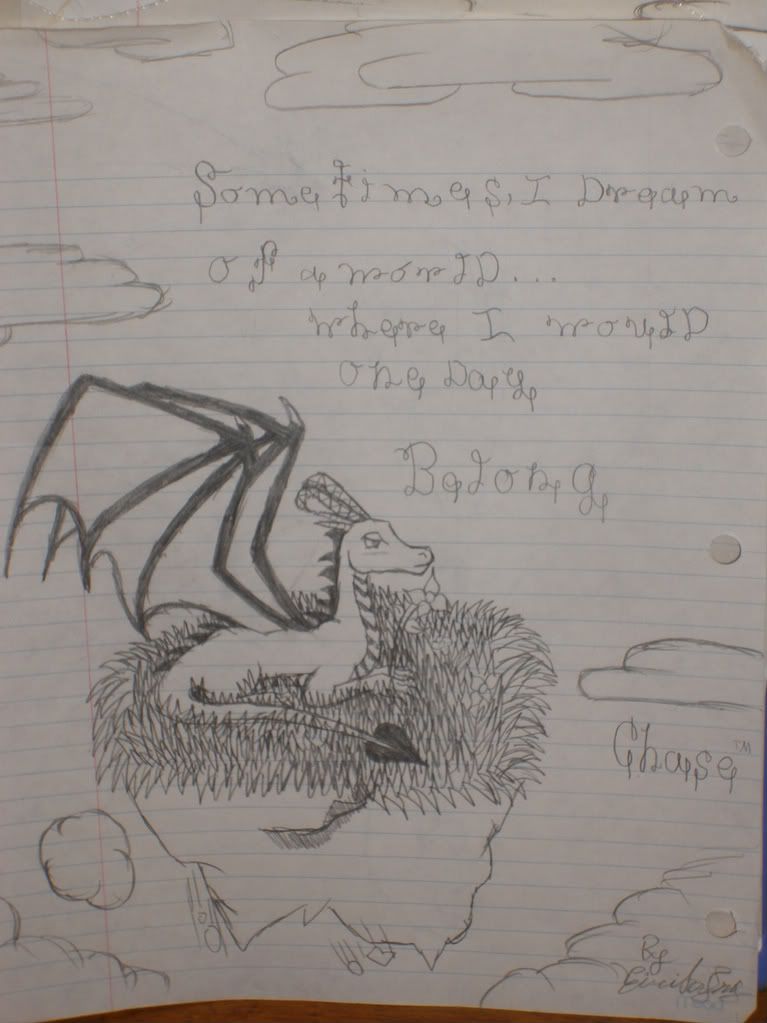 Sometimes, I Dream
of a world...
where I would
one Day
Belong
Chase™
By